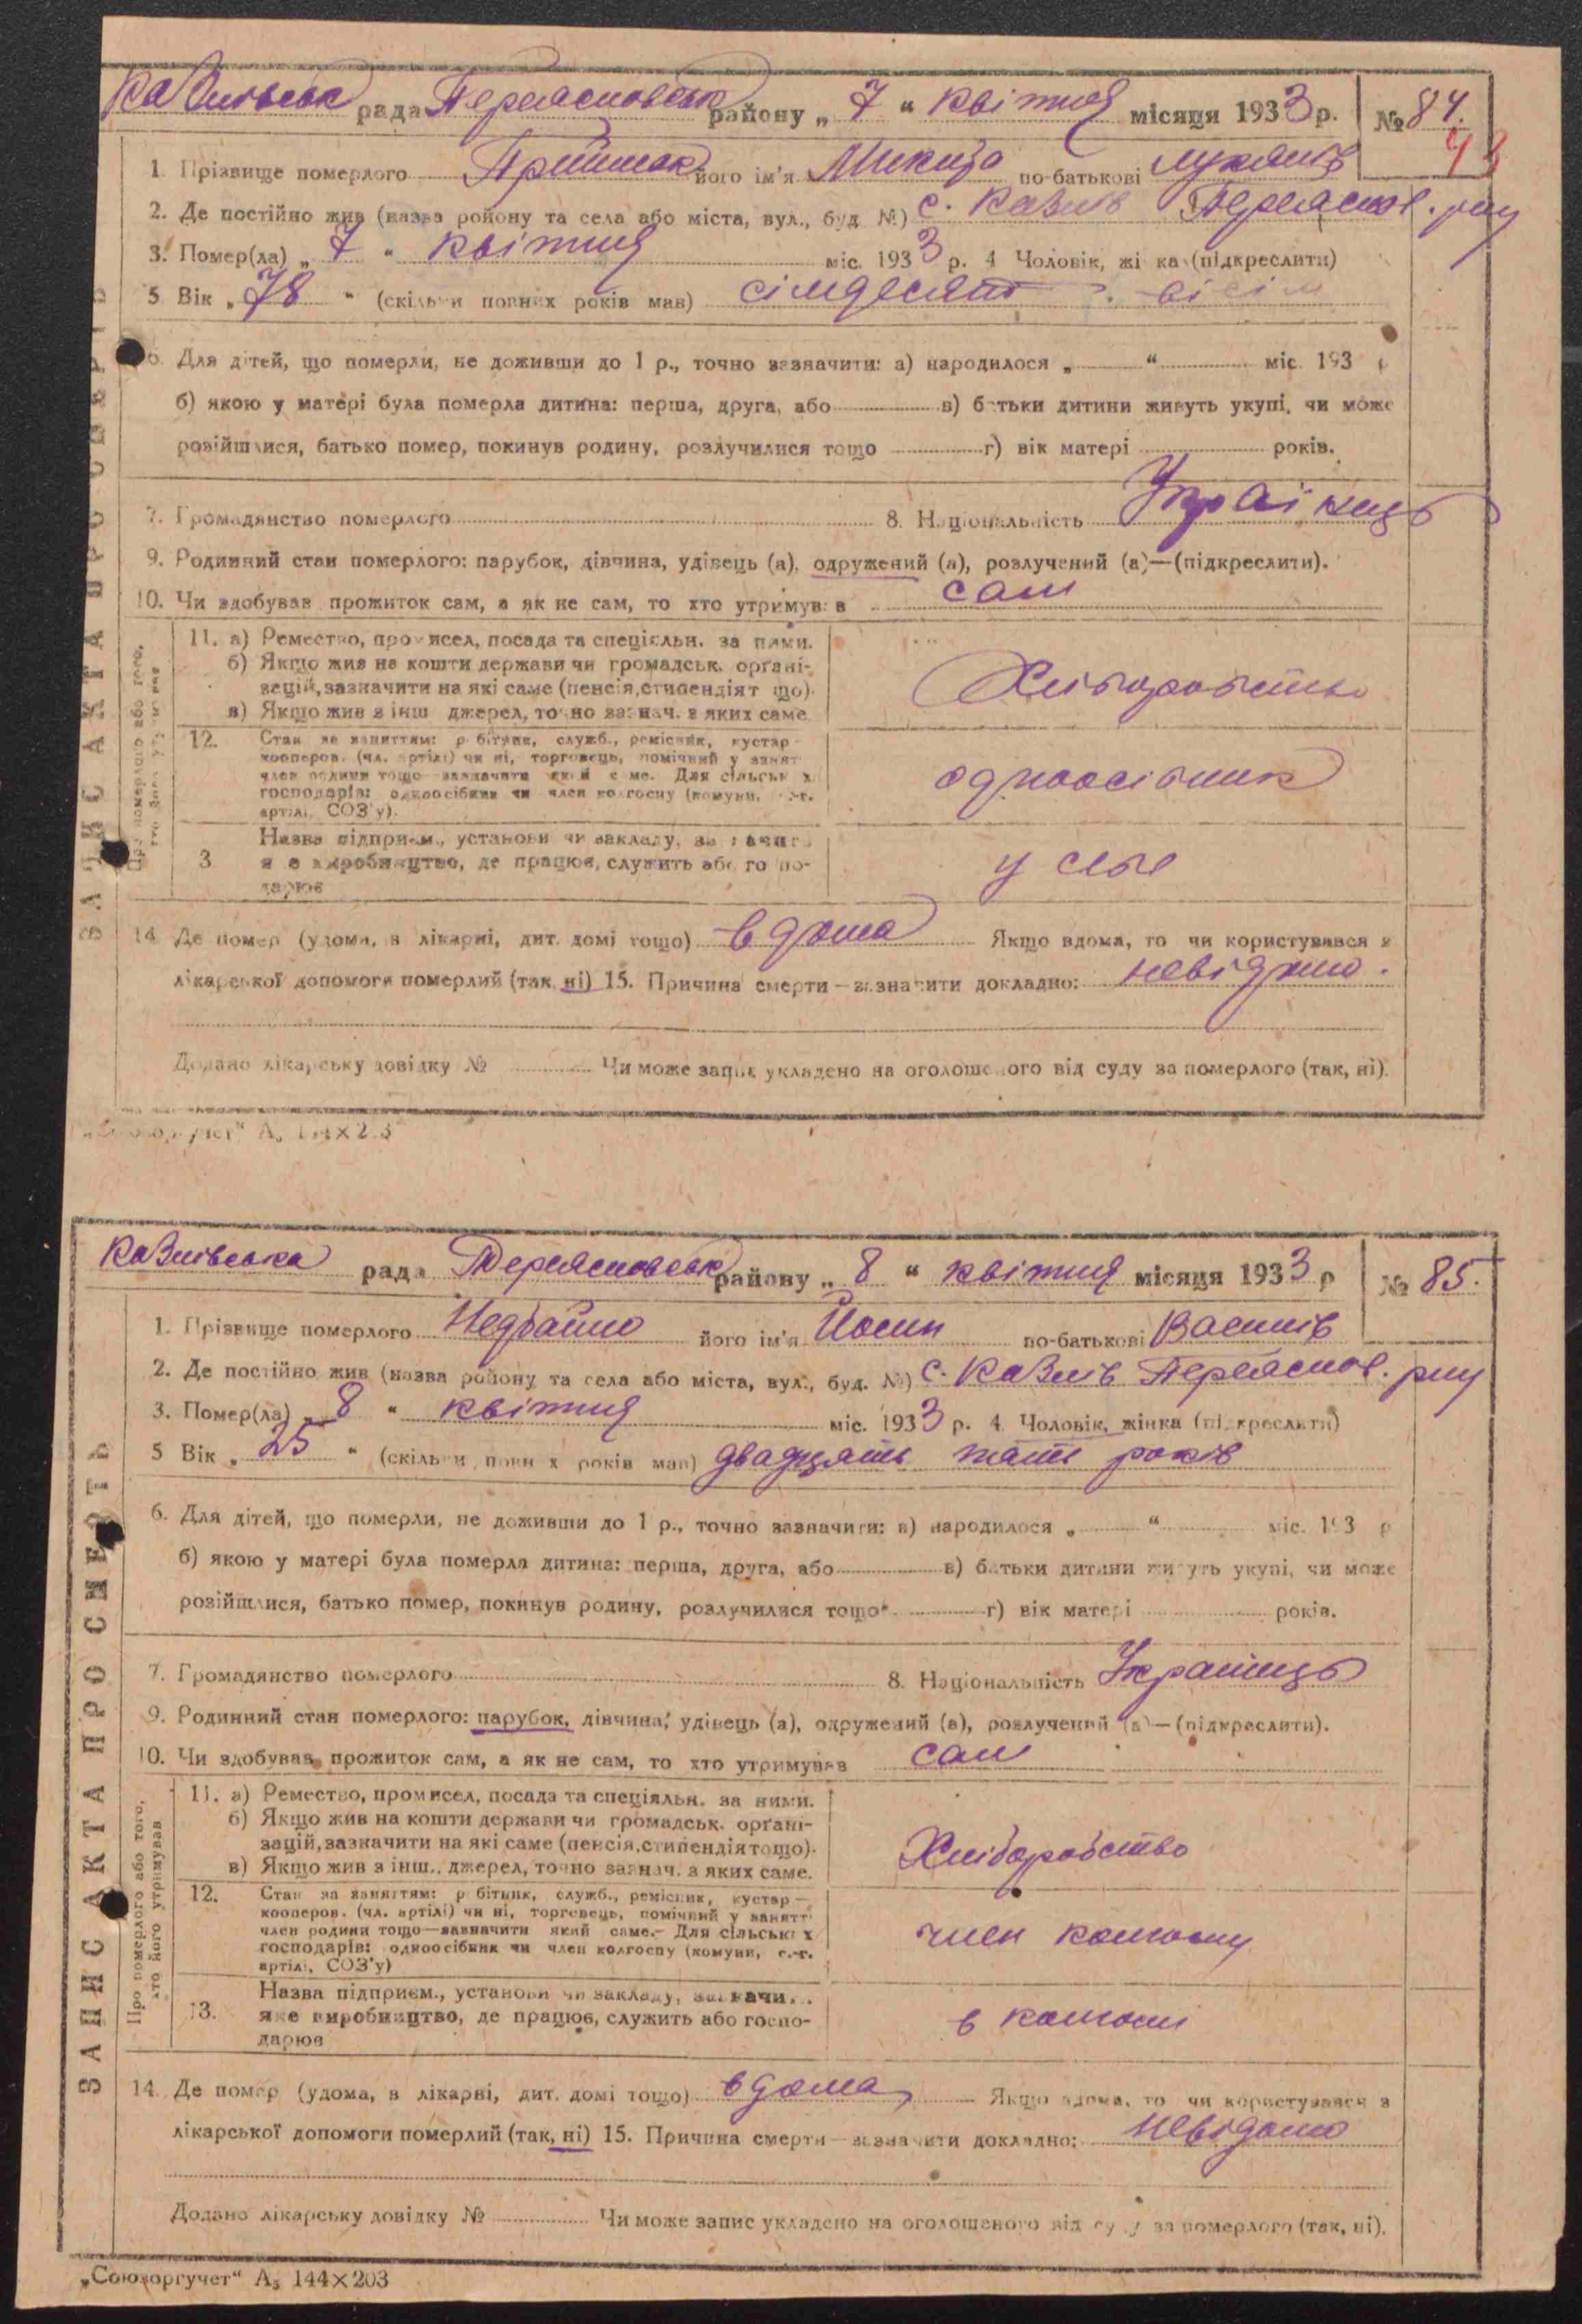 Казлівськ рада Переяславськ району „ 7 “ квітня місяця 1933 р. № 84.
43
1. Прізвище померлого Приймак його ім'я Микита по-батькові Лукянів
2. Де постійно жив (назва ройону та села або міста, вул., буд. №) с. Казлів Переяслов. р-ну
3. Помер(ла) „ 7 “ квітня міс. 1933 р. 4 Чоловік, жінка (підкреслити)
5 Вік „ 78 “ (скільки повних років мав) сімдесять вісім
6. Для дітей, що померли, не доживши до 1 р., точно зазначити: а) народилося „ “ міс. 193 р
б) якою у матері була померла дитина: перша, друга, або в) батьки дитини живуть укупі, чи може
розійшлися, батько помер, покинув родину, розлучилися тощо г) вік матері років.
7. Громадянство померлого 8. Національність Українець
9. Родинний стан померлого: парубок, дівчина, удівець (а), одружений (а), розлучений (а)—(підкреслити).
10. Чи здобував прожиток сам, а як не сам, то хто утримував сам
11. а) Ремество, промисел, посада та спеціяльн. за ними.
б) Якщо жив на кошти держави чи громадськ. орґані-
зецій, зазначити на які саме (пенсія, стипендіят що).
в) Якщо жив з інш джерел, точно зазнач. з яких саме.
Хліборобство
12. Стан за заняттям: робітник, служб., ремісник, кустар-
кооперов. (чл. артілі) чи ні, торговець, помічний у занят
член родини тощо—зазначити який саме. Для сільськ х
господарів: одноосібник чи член колгоспу (комуни, с.-г.
артілі, СОЗ'у).
одноосібник
Назва підприєм., установи чи закладу, зазначит
3 яке виробництво, де працює, служить або госпо-
дарює
у селі
14 Де помер (удома, в лікарні, дит. домі тощо) в дома Якщо вдома, то чи користувався з
лікарської допомоги померлий (так, ні) 15. Причина смерти—зазначити докладно: невідомо.
Додано лікарську довідку № Чи може запис укладено на оголошеного від суду за померлого (так, ні).
„Союзоргучет“ А₅ 144×203
ЗАПИС АКТА ПРО СМЕРТЬ
Про померлого або того,
хто його утримував
Казлівська рада Переяславськ району „ 8 “ квітня місяця 1933 р № 85.
1. Прізвище померлого Недбайло його ім'я Йосип по-батькові Василів
2. Де постійно жив (назва ройону та села або міста, вул., буд. №) с. Казлів Переяслов. р-ну
3. Помер(ла) „ 8 “ квітня міс. 1933 р. 4. Чоловік, жінка (підкреслити)
5 Вік „ 25 “ (скільки повн х років мав) двадцять пять років
6. Для дітей, що померли, не доживши до 1 р., точно зазначити: а) народилося „ “ міс. 193 р
б) якою у матері була померла дитина: перша, друга, або в) батьки дитини живуть укупі, чи може
розійшлися, батько помер, покинув родину, розлучилися тощо г) вік матері років.
7. Громадянство померлого 8. Національність Українець
9. Родинний стан померлого: парубок, дівчина, удівець (а), одружений (а), розлучений (а)—(підкреслити).
10. Чи здобував прожиток сам, а як не сам, то хто утримував сам
11. а) Ремество, промисел, посада та спеціяльн. за ними.
б) Якщо жив на кошти держави чи громадськ. орґані-
зацій, зазначити на які саме (пенсія, стипендія тощо).
в) Якщо жив з інш., джерел, точно зазнач. з яких саме.
Хліборобство
12. Стан за заняттям: робітник, служб., ремісник, кустар—
кооперов. (чл. артілі) чи ні, торговець, помічний у занятті
член родини тощо—зазначити який саме.- Для сільських
господарів: одноосібник чи член колгоспу (комуни, с.-г.
артілі, СОЗ'у)
член колгоспу
Назва підприєм., установи чи закладу, зазначи
13. яке виробництво, де працює, служить або госпо-
дарює
в колгоспі
14. Де помер (удома, в лікарні, дит. домі тощо) в дома Якщо вдома, то чи користувався з
лікарської допомоги померлий (так, ні) 15. Причина смерти—зазначити докладно: невідомо
Додано лікарську довідку № Чи може запис укладено на оголошеного від суду за померлого (так, ні).
„Союзоргучет“ А₅ 144×203
ЗАПИС АКТА ПРО СМЕРТЬ
Про померлого або того,
хто його утримував